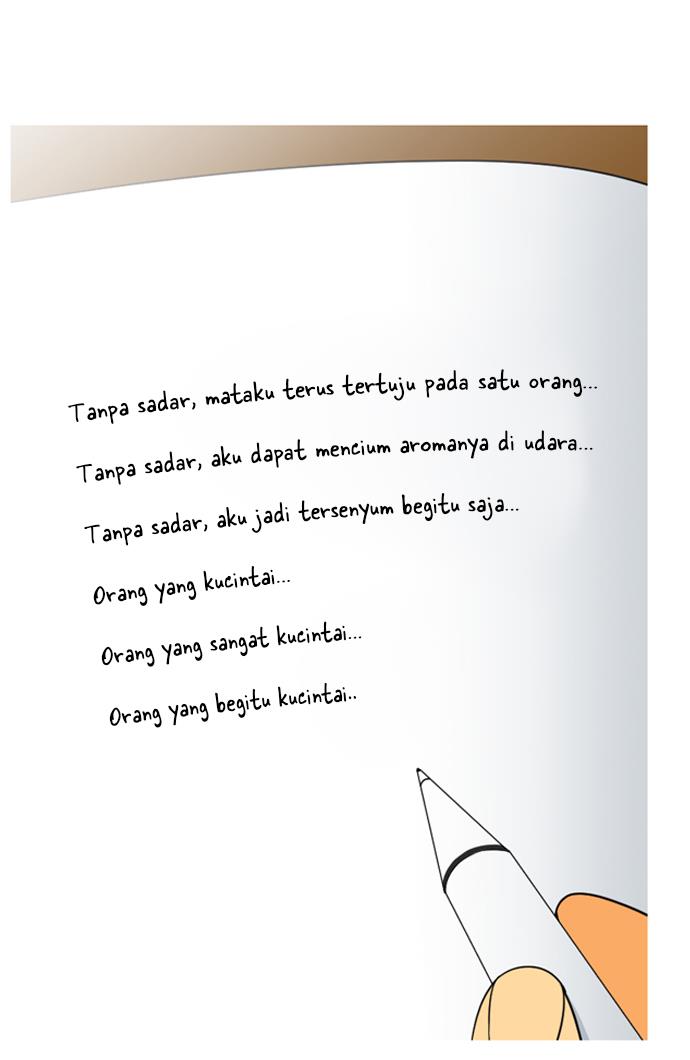 Tanpa sadar, mataku terus tertuju pada satu orang...
Tanpa sadar, aku dapat mencium aromanya di udara...
Tanpa sadar, aku jadi tersenyum begitu saja...
Orang yang kucintai...
Orang yang sangat kucintai...
Orang yang begitu kucintai..